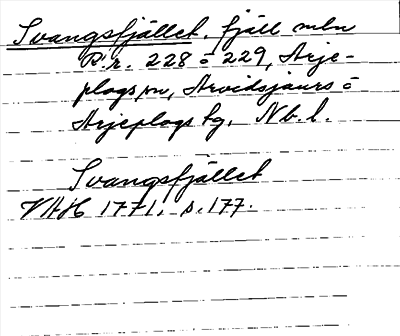 Svangsfjället, fjäll mln
R.r. 228 o 229, Arje-
plogs sn, Arvidsjaurs o
Arjeplogs tg, Nb. l.
Svangsfjället
VAH 1771, s. 177.